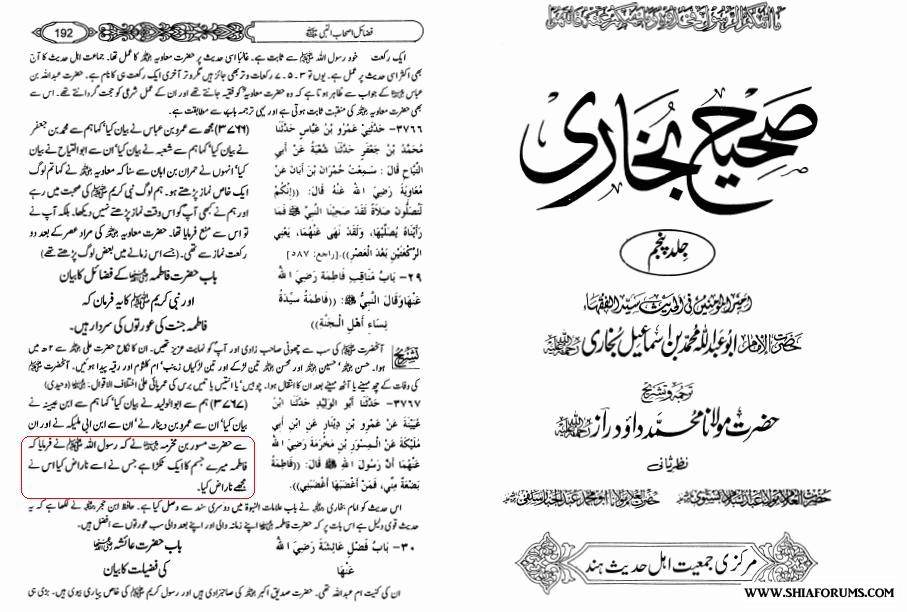 صحیح بخاری
جلد پنجم
امیر المومنین فی الحدیث سید الفقہاء
حضرت الامام ابو عبداللہ محمد بن اسماعیل بخاری رحمۃ اللہ علیہ
ترجمہ و تشریح
حضرت مولانا محمد داؤد راز رحمۃ اللہ علیہ
نظر ثانی
مرکزی جمعیت اہل حدیث ہند
WWW.SHIAFORUMS.COM
فضائل اصحاب النبی ﷺ
192
ایک رکعت خود رسول اللہ ﷺ سے ثابت ہے۔ غالبا اسی حدیث پر حضرت معاویہ رضی اللہ عنہ کا عمل تھا۔ جماعت اہل حدیث کا آج
بھی اکثر اسی حدیث پر عمل ہے۔ یوں تو ٣۔ ٥۔ ٧ رکعات وتر بھی جائز ہیں مگر وتر آخری ایک رکعت ہی کا نام ہے۔ حضرت عبداللہ بن
عباس رضی اللہ عنہ کے جواب سے ظاہر ہوتا ہے کہ وہ حضرت معاویہ کو فقیہ جانتے تھے اور ان کے عمل شرعی کو حجت گردانتے تھے۔ اس سے
بھی حضرت معاویہ رضی اللہ عنہ کی منقبت ثابت ہوتی ہے اور یہی ترجمہ باب سے مطابقت ہے۔
٣٧٦٦- حَدَّثَنِيْ عَمْرُو بْنُ عَبَّاسٍ حَدَّثَنَا
مُحَمَّدُ بْنُ جَعْفَرٍ حَدَّثَنَا شُعْبَةُ عَنْ أَبِي
التَّيَّاحِ قَالَ: سَمِعْتُ حُمْرَانَ بْنَ أَبَانَ عَنْ
مُعَاوِيَةَ رَضِيَ اللهُ عَنْهُ قَالَ: ((إِنَّكُمْ
لَتُصَلُّونَ صَلاَةً لَقَدْ صَحِبْنَا النَّبِيَّ ﷺ فَمَا
رَأَيْنَاهُ يُصَلِّيهَا، وَلَقَدْ نَهَى عَنْهُمَا، يَعْنِي
الرَّكْعَتَيْنِ بَعْدَ الْعَصْرِ)).[راجع: ٥٨٧]
٢٩- بَابُ مَنَاقِبِ فَاطِمَةَ رَضِيَ اللهُ
عَنْهَا وَقَالَ النَّبِيُّ ﷺ: ((فَاطِمَةُ سَيِّدَةُ
نِسَاءِ أَهْلِ الْجَنَّةِ))
(٣٧٦٦) مجھ سے عمرو بن عباس نے بیان کیا' کہا ہم سے محمد بن جعفر
نے بیان کیا' کہا ہم سے شعبہ نے بیان کیا' ان سے ابو التیاح نے بیان
کیا' انہوں نے حمران بن ابان سے سنا کہ معاویہ رضی اللہ عنہ نے کہا تم لوگ
ایک خاص نماز پڑھتے ہو۔ ہم لوگ نبی کریم ﷺ کی صحبت میں رہے
اور ہم نے کبھی آپ کو اس وقت نماز پڑھتے نہیں دیکھا۔ بلکہ آپ نے
تو اس سے منع فرمایا تھا۔ حضرت معاویہ رضی اللہ عنہ کی مراد عصر کے بعد دو
رکعت نماز سے تھی۔ (جسے اس زمانے میں بعض لوگ پڑھتے تھے)
باب حضرت فاطمہ رضی اللہ عنہا کے فضائل کا بیان
اور نبی کریم ﷺ کا یہ فرمان کہ
فاطمہ جنت کی عورتوں کی سردار ہیں۔
تشریح
آنحضرت ﷺ کی سب سے چھوٹی صاحب زادی اور آپ کو نہایت عزیز تھیں۔ ان کا نکاح حضرت علی رضی اللہ عنہ سے ٢ھ میں
ہوا۔ حسن رضی اللہ عنہ' حسین رضی اللہ عنہ اور محسن رضی اللہ عنہ تین لڑکے اور تین لڑکیاں زینب' ام کلثوم اور رقیہ پیدا ہوئیں۔ آنحضرت ﷺ
کی وفات کے چھ مہینے یا آٹھ مہینے بعد ان کا انتقال ہوا۔ چوبیس' یا انتیس یا تیس برس کی عمر پائی علی اختلاف الاقوال۔ (وحیدی)
٣٧٦٧- حَدَّثَنَا أَبُو الْوَلِيْدِ حَدَّثَنَا ابْنُ
عُيَيْنَةَ عَنْ عَمْرِو بْنِ دِيْنَارٍ عَنِ ابْنِ أَبِي
مُلَيْكَةَ عَنِ الْمِسْوَرِ بْنِ مَخْرَمَةَ رَضِيَ اللهُ
عَنْهُمَا أَنَّ رَسُولَ اللهِ ﷺ قَالَ: ((فَاطِمَةُ
بَضْعَةٌ مِنِّي، فَمَنْ أَغْضَبَهَا أَغْضَبَنِي)).
(٣٧٦٧) ہم سے ابو الولید نے بیان کیا' کہا ہم سے ابن عیینہ نے
بیان کیا' ان سے عمرو بن دینار نے' ان سے ابن ابی ملیکہ نے اور ان
سے حضرت مسور بن مخرمہ رضی اللہ عنہ نے کہ رسول اللہ ﷺ نے فرمایا کہ
فاطمہ میرے جسم کا ایک ٹکڑا ہے جس نے اسے ناراض کیا اس نے
مجھے ناراض کیا۔
اس حدیث کو امام بخاری رضی اللہ عنہ نے باب علامات النبوۃ میں دوسری سند سے وصل کیا ہے۔ حافظ ابن حجر رضی اللہ عنہ نے لکھا ہے کہ یہ
حدیث قوی دلیل ہے اس بات پر کہ حضرت فاطمہ رضی اللہ عنہا اپنے زمانہ والی اور اپنے بعد والی سب عورتوں سے افضل ہیں۔
٣٠- بَابُ فَضْلِ عَائِشَةَ رَضِيَ اللهُ
عَنْهَا
باب حضرت عائشہ رضی اللہ عنہا
کی فضیلت کا بیان
ان کی کنیت ام عبداللہ تھی۔ حضرت صدیق اکبر رضی اللہ عنہ کی صاحبزادی ہیں اور رسول کریم ﷺ کی خاص پیاری بیوی ہیں۔ بڑی ہی